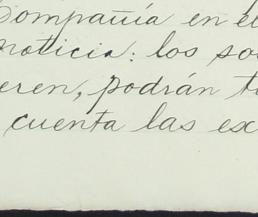 Compañía en el
noticia: los so
eren, podrán t
cuenta las ex